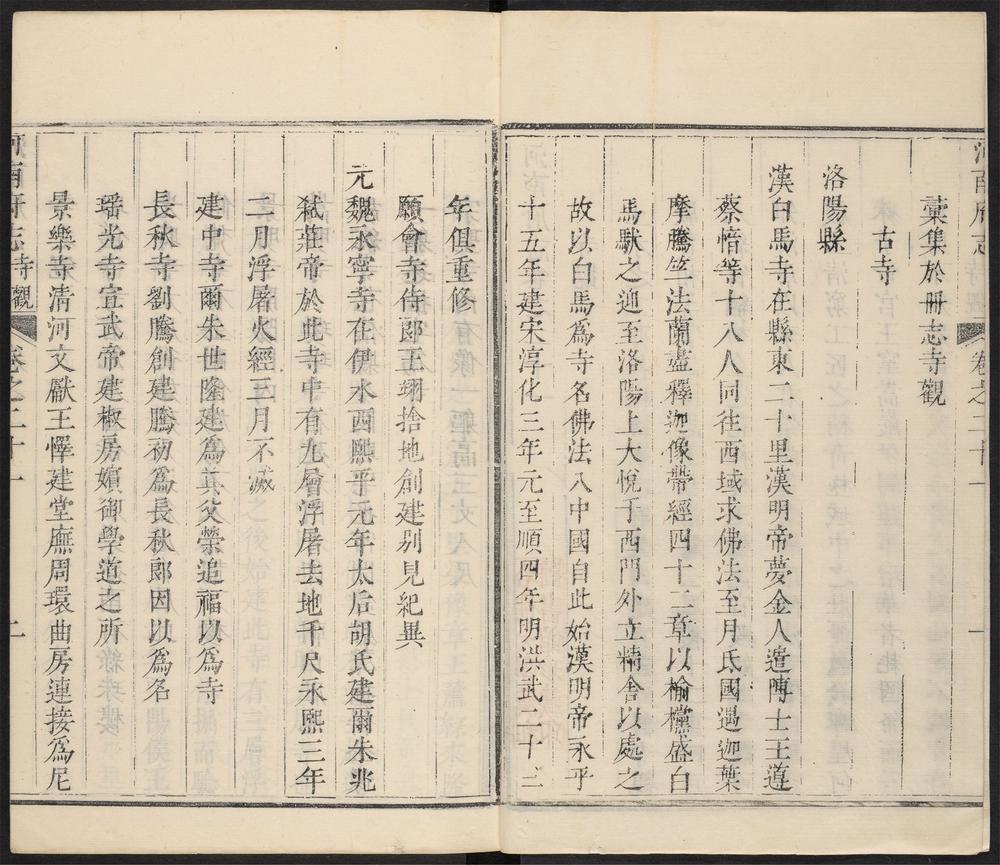 河南府志 卷之二十一 一
彙集於冊志寺觀
古寺
洛陽縣
漢白馬寺在縣東二十里漢明帝夢金人遣博士王遵
蔡愔等十八人同往西域求佛法至月氏國遇迦葉
摩騰竺法蘭盡釋迦像帶經四十二章以榆欓盛白
馬馱之迎至洛陽上大悅于西門外立精舍以處之
故以白馬為寺名佛法入中國自此始漢明帝永平
十五年建宋淳化三年元至順四年明洪武二十三
年俱重修
願會寺侍郎王翊捨地創建別見紀異
元魏永寧寺在伊水酉熙平元年太后胡氏建爾朱兆
弒莊帝於此寺中有九層浮屠去地千尺永熙三年
二月浮屠火經三月不滅
建中寺爾朱世隆建為其父榮追福以為寺
長秋寺劉騰創建騰初為長秋郎因以為名
瑤光寺宣武帝建椒房嬪御學道之所
景樂寺清河文獻王懌建堂廡周環曲房連接為尼
河南府志寺觀 卷之二十一 二